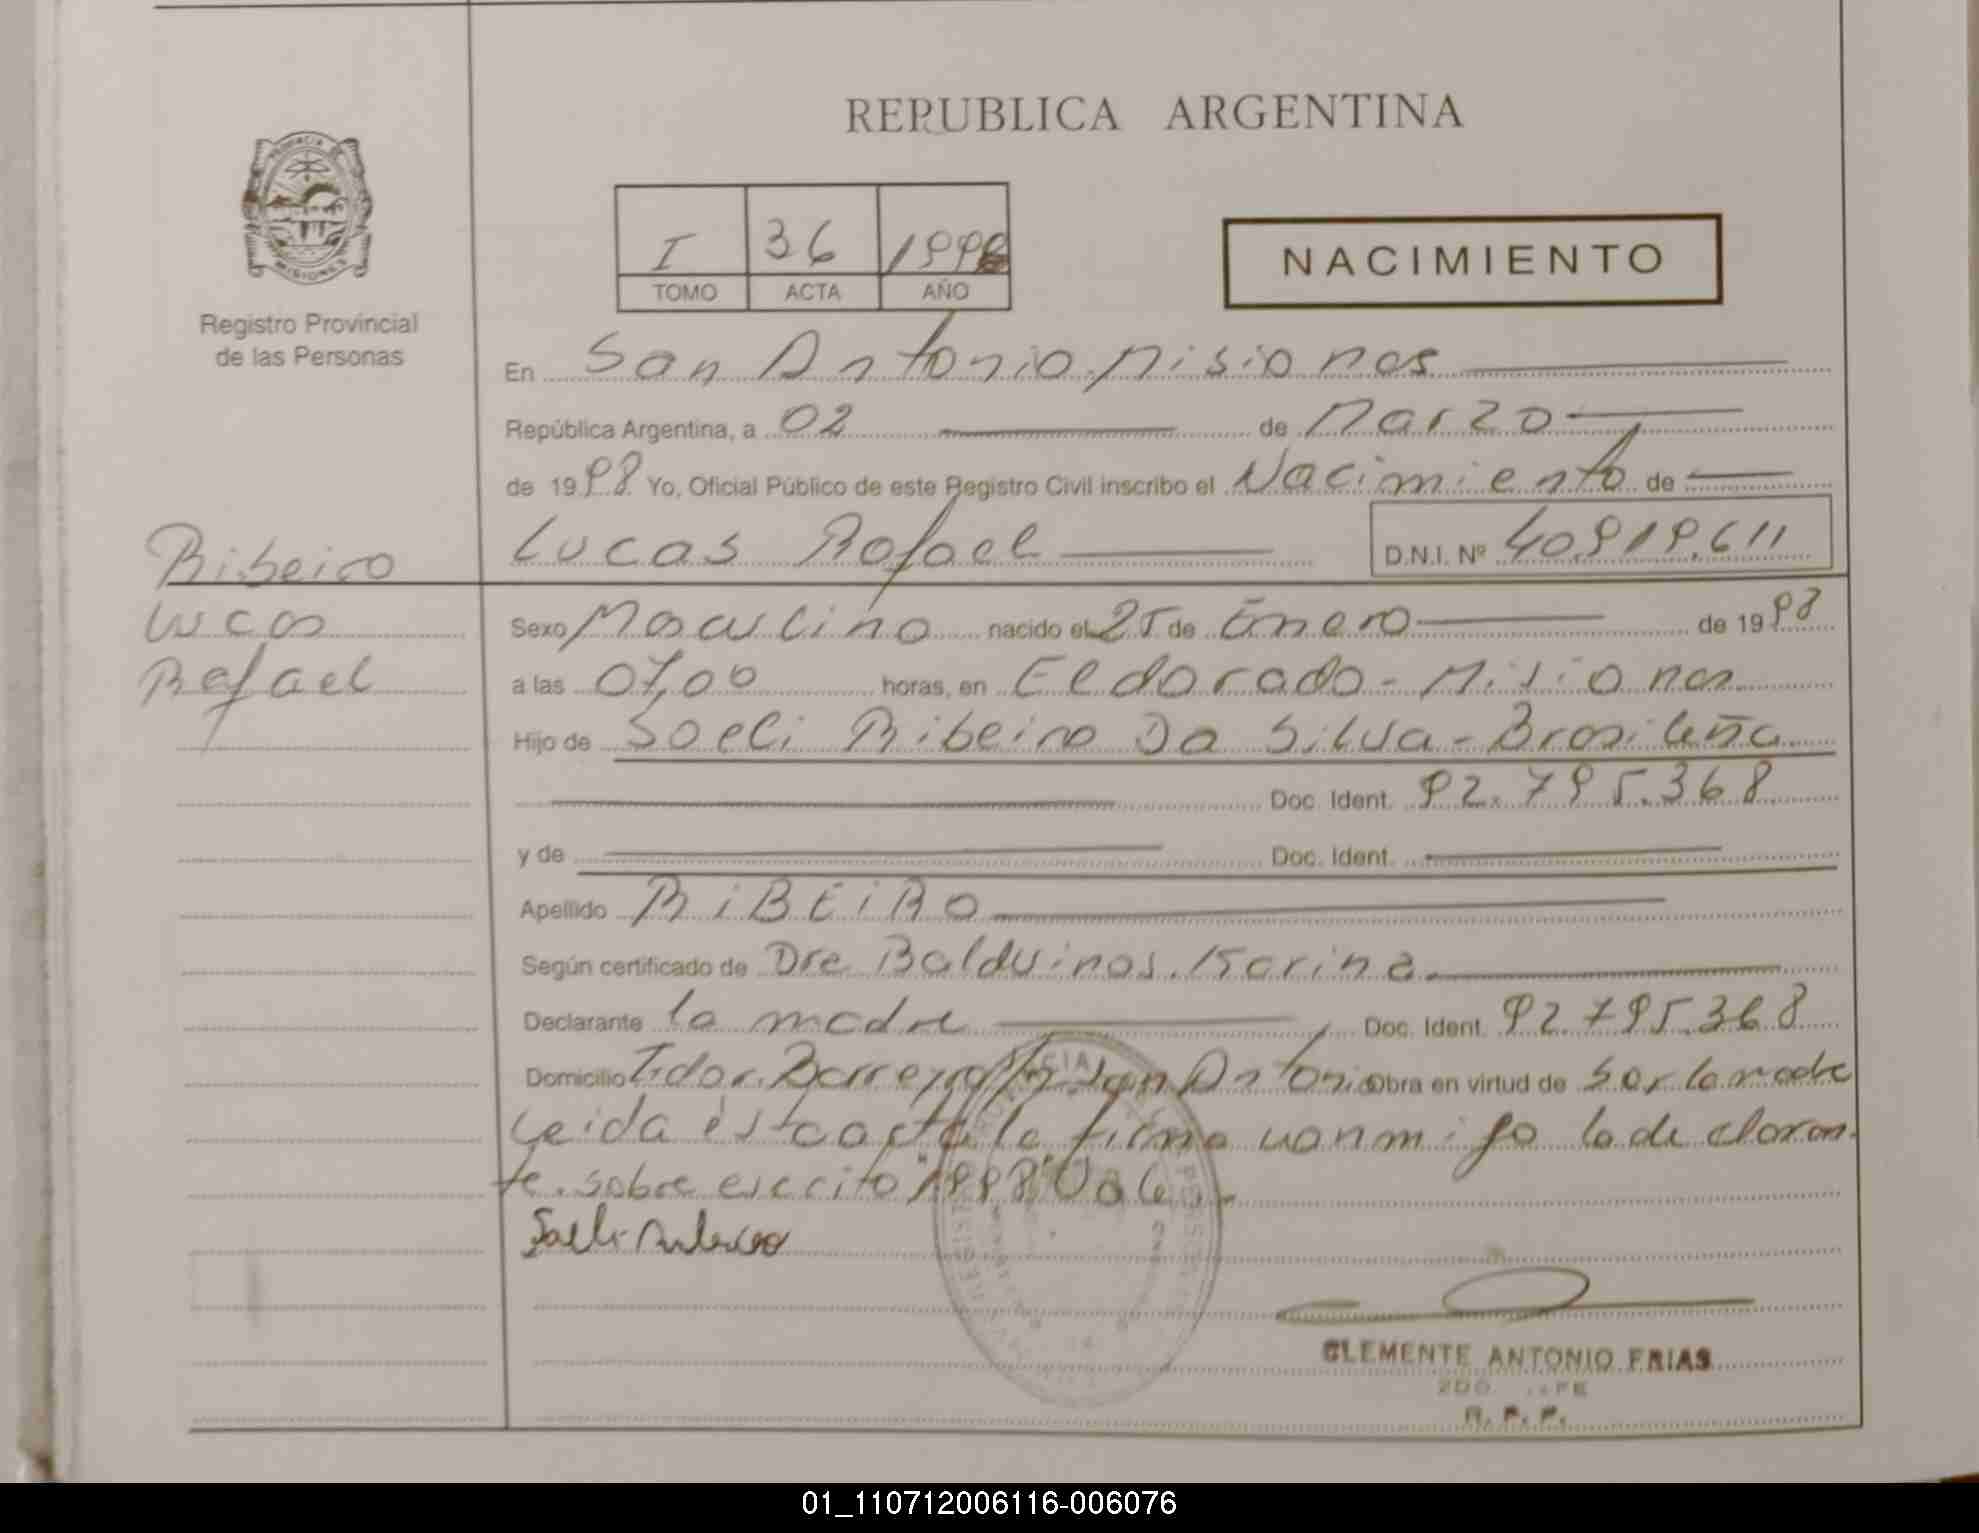 REPUBLICA ARGENTINA
PROVINCIA DE
MISIONES
Registro Provincial
de las Personas
I 36 1998
TOMO ACTA AÑO
NACIMIENTO
En San Antonio Misiones
República Argentina, a 02 de Marzo
de 1998 Yo, Oficial Público de este Registro Civil inscribo el Nacimiento de
Lucas Rafael D.N.I. Nº 40.919.611
Ribeiro
Lucas
Rafael
Sexo Masculino nacido el 25 de Enero de 1998
a las 07,00 horas, en Eldorado - Misiones
Hijo de Soeli Ribeiro Da Silva - Brasileña
Doc. Ident. 92.795.368
y de Doc. Ident.
Apellido RIBEIRO
Según certificado de Dra Balduinos, Karina
Declarante la madre Doc. Ident. 92.795.368
Domicilio Tdor. Barreyro San Antonio Obra en virtud de Ser la madre
Leida ésta acta la firma conmigo la declaran-
te. sobre escrito "1998"
CLEMENTE ANTONIO FRIAS
2DO. JEFE
R. P. P.
01_110712006116-006076